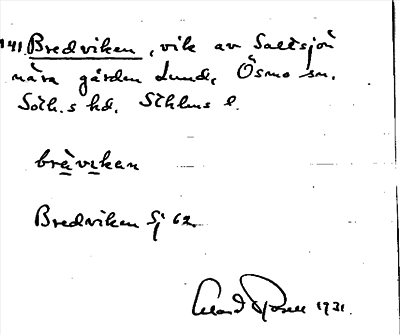 141. Bredviken, vik av Saltsjön
nära gården Lund, Ösmo sn.
Soth.s hd. Sthlms l.
brävikan
Bredviken Gj 62
1931.